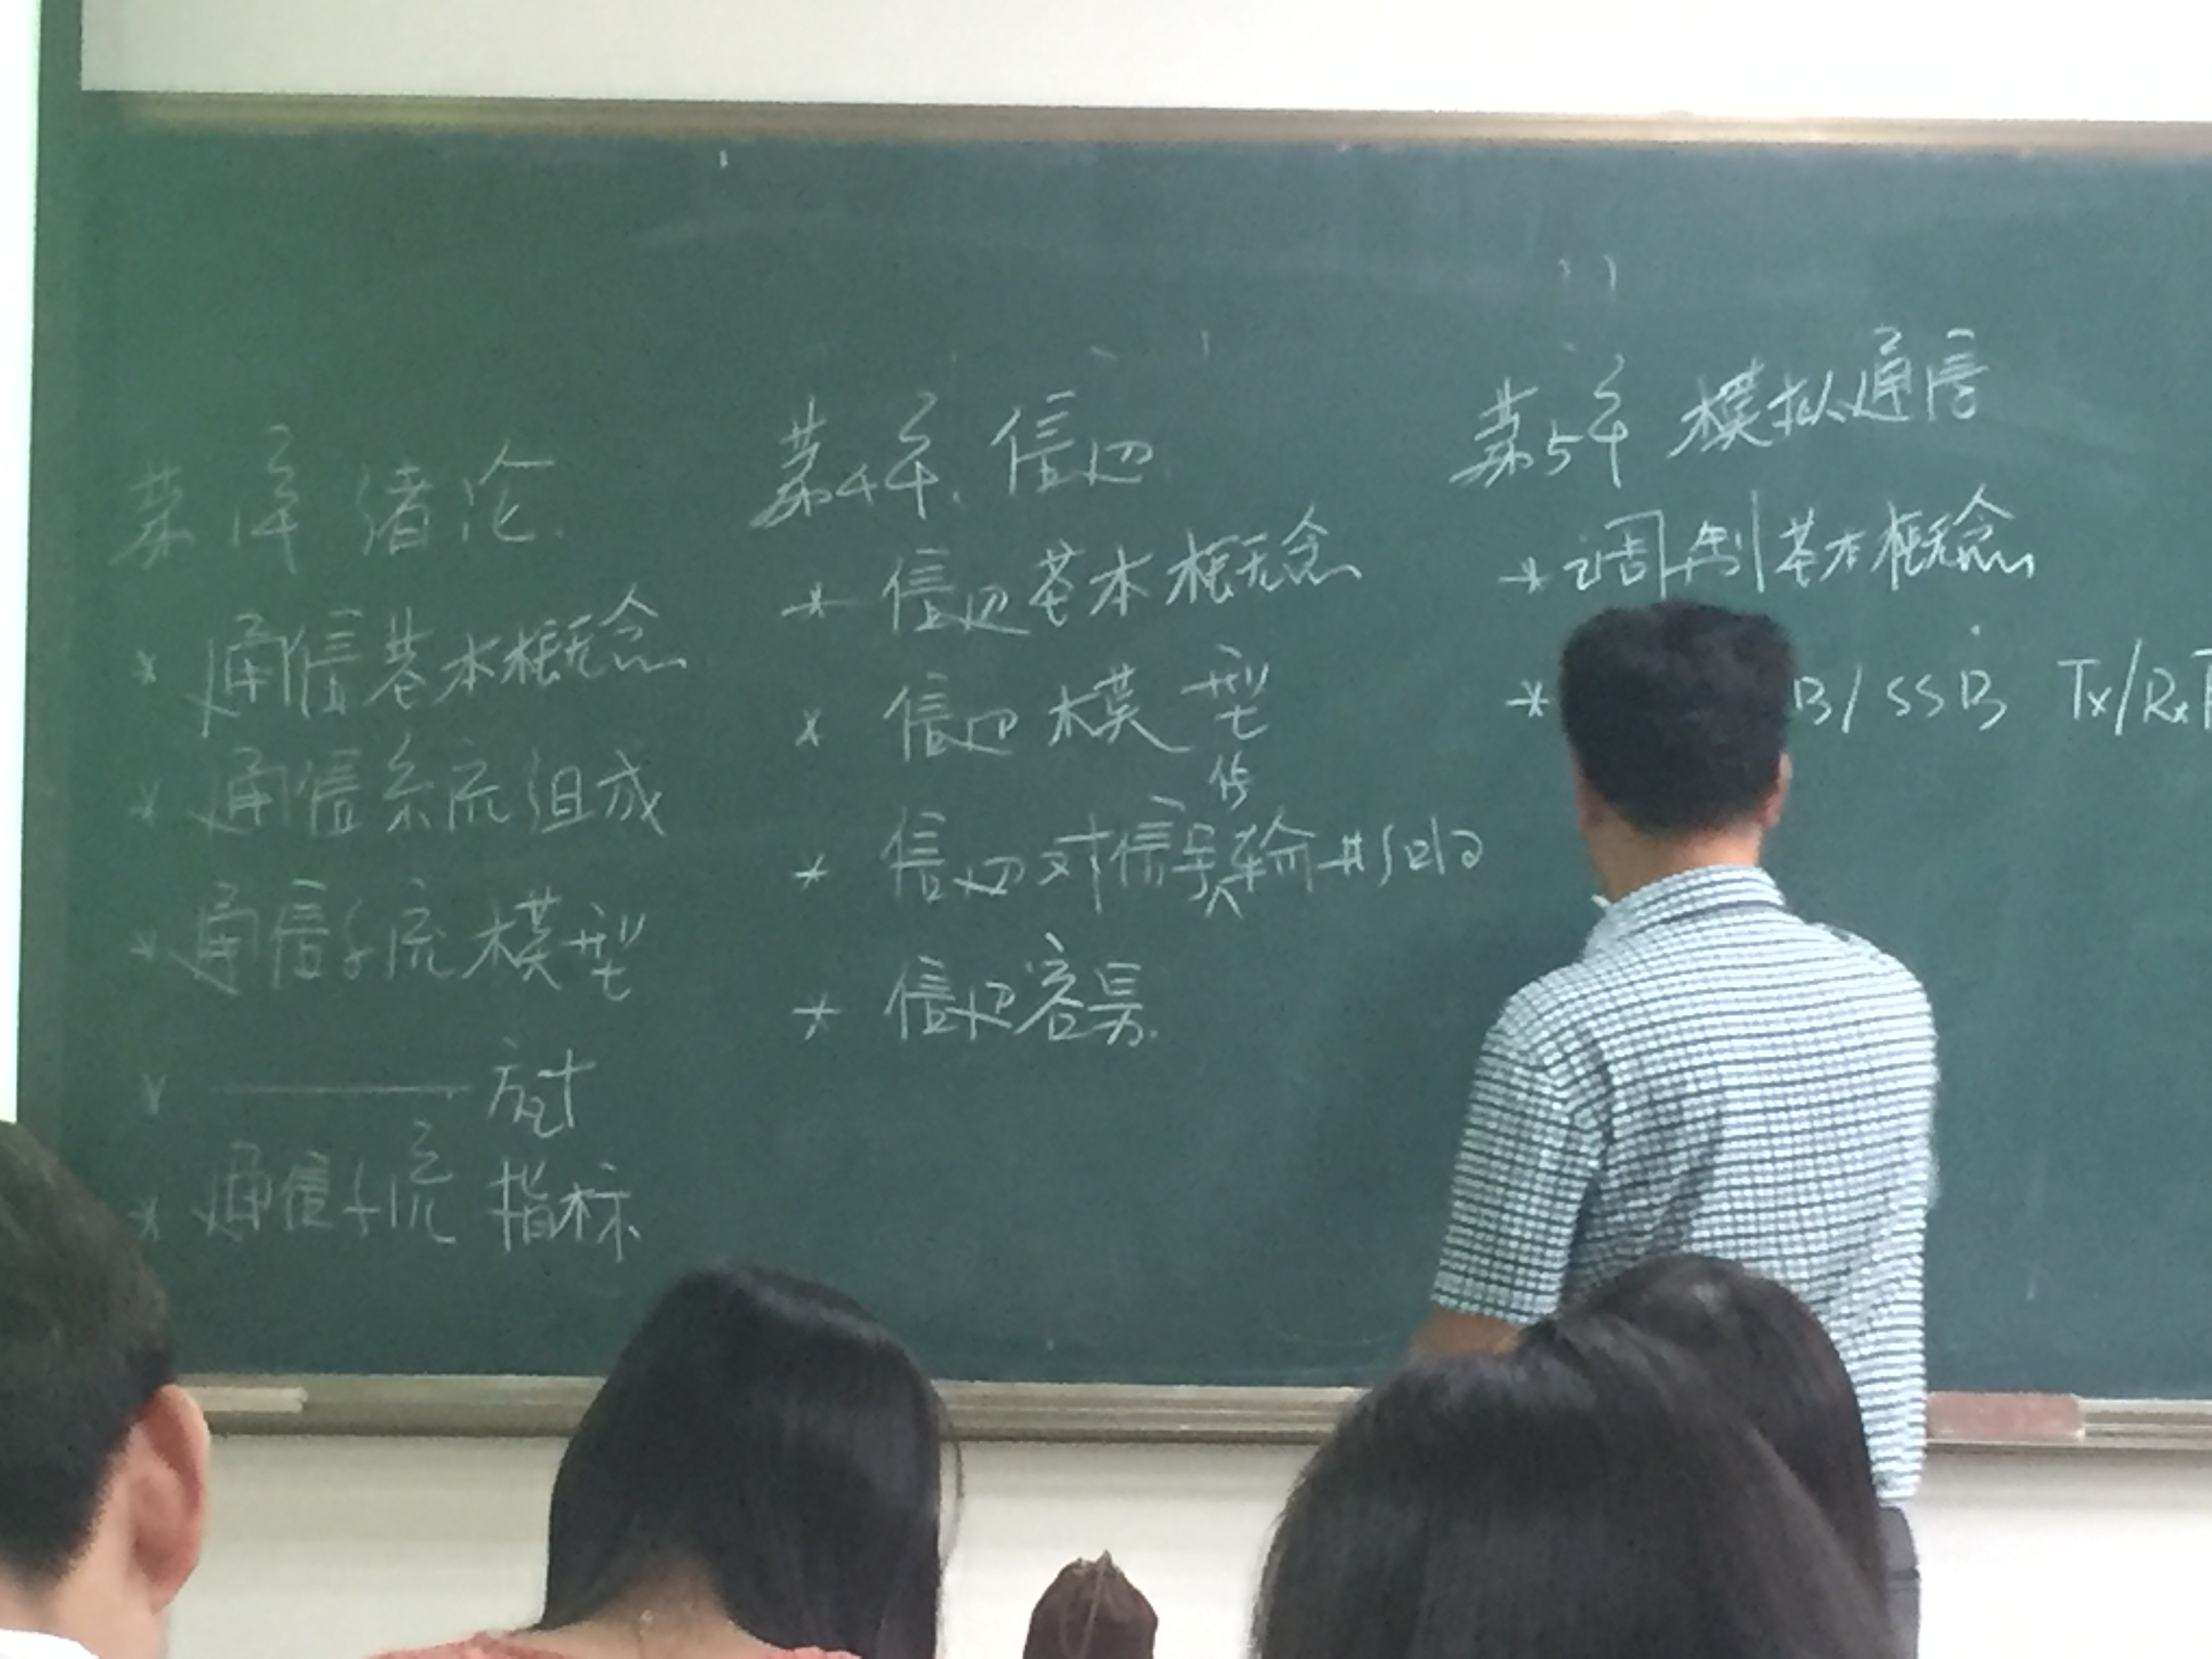 第1章 绪论.
* 通信基本概念
* 通信系统组成
* 通信系统模型
* ——— 方式
* 通信系统 指标
第4章. 信道
* 信道基本概念
* 信道模型
* 信道对信号传输影响
* 信道容量.
第5章 模拟通信
* 调制基本概念
* B/SSB Tx/Rx